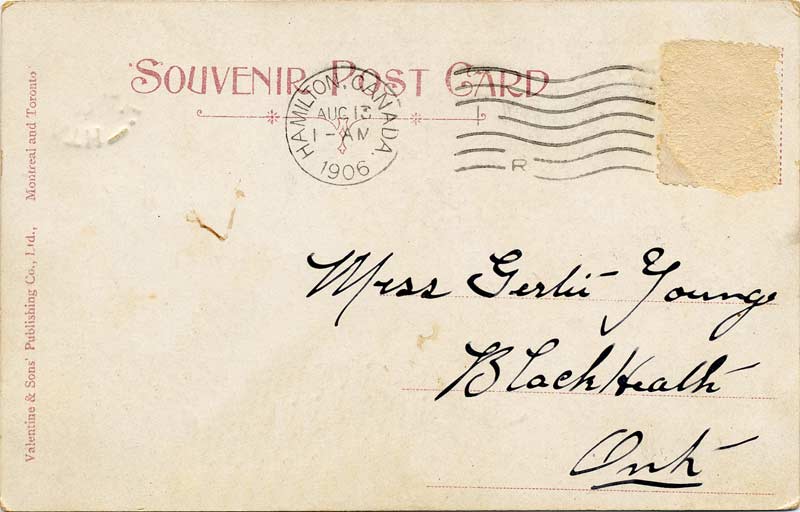 SOUVENIR POST CARD
HAMILTON, CANADA.
AUG 13
1 - AM
1906
R
Miss Gertie Young
BlackHeath
Ont
Valentine & Sons' Publishing Co., Ltd., Montreal and Toronto